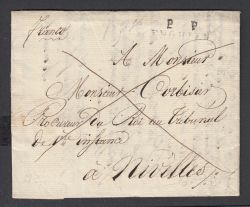 franco
P P
A Monsieur
Monsieur Corbisier
Procureur du Roi au tribunal
de 1re instance
à Nivelles